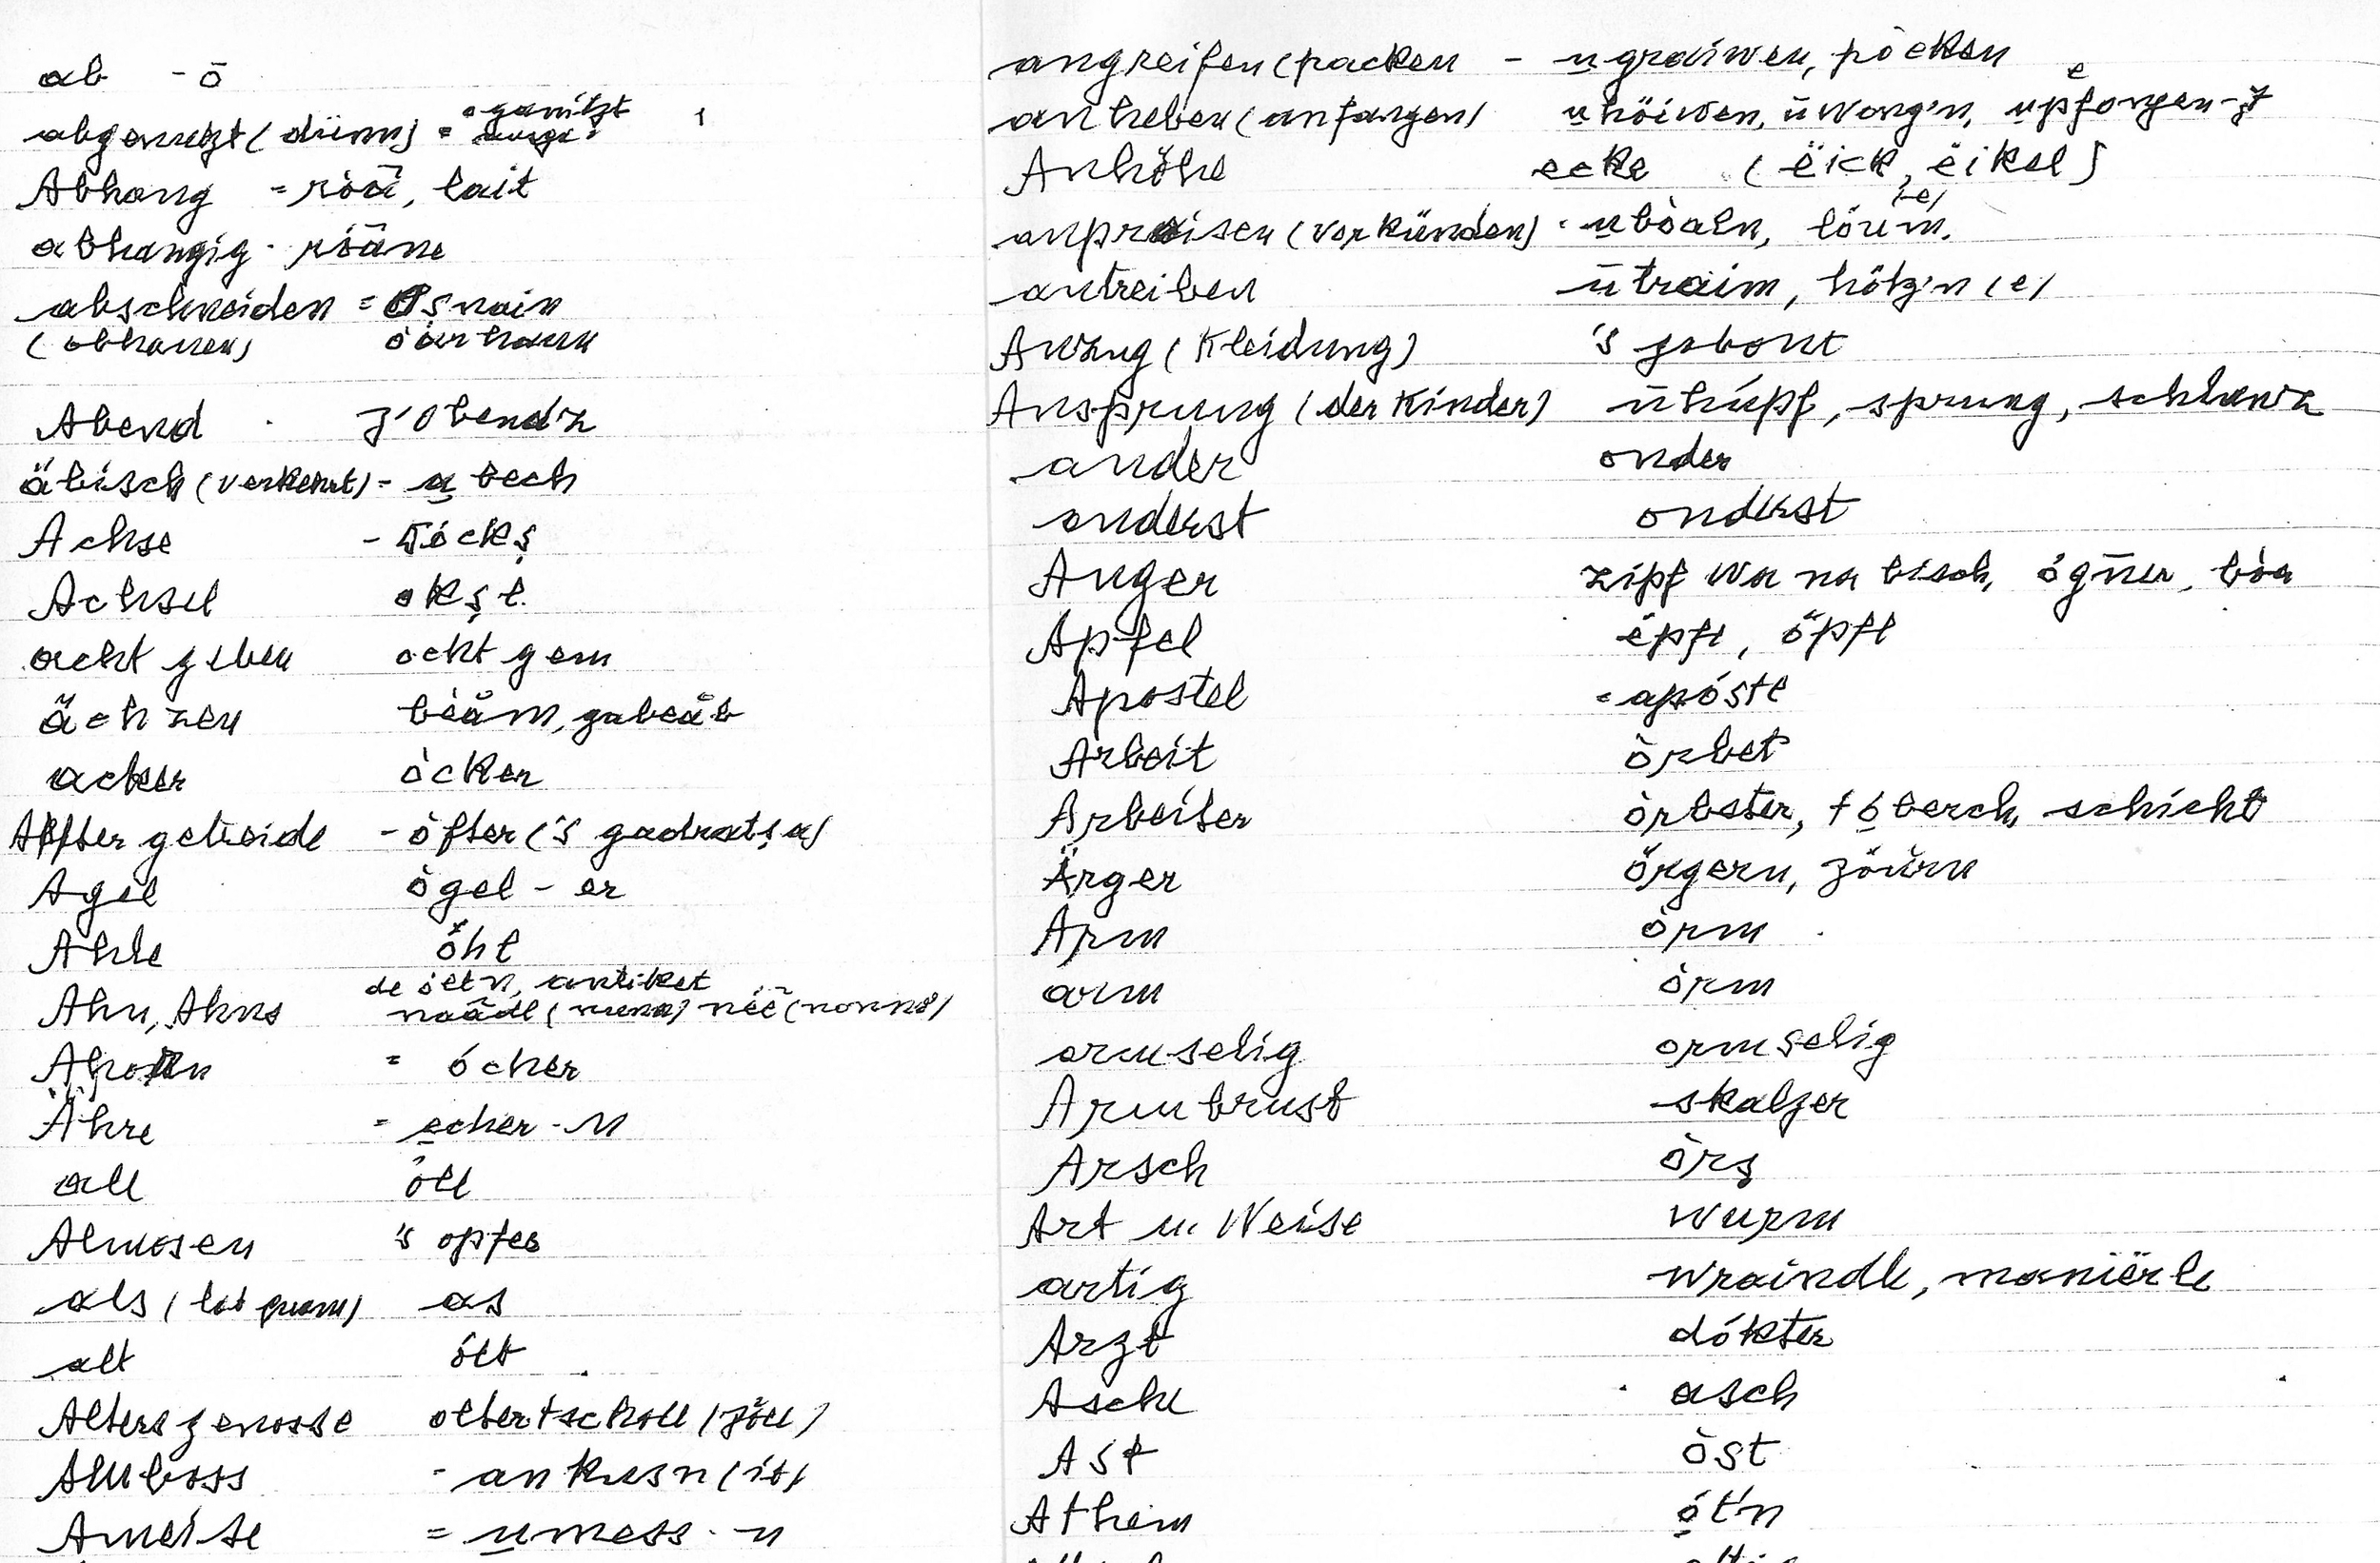 ab - ō
abgenutzt (dünn) = oganitzt
Abhang = röä, lait
abhangig - rööne
abschneiden = oṣnain
(abhauen) óärhaun
Abend z'obend'z
äbisch (verkehrt) - a̱bech
Achse - öcks̩
Achsel oks̩l.
acht geben ocht gem
ächzen beäm, gabeäb
acker òcker
Affter getreide - òfter ('s gadratṣa)
Agel ògel - er
Ahle öhl
de öltn, antiket
Ahn, Ahns naädl (nena) nëë (nonna)
Ahorn = ócher
Ähre = e̱cher - n
all òll
Almosen 's opfer
als (lat quam) as
alt ólt
Altersgenosse oltertscholl (zöll)
Amboss - ankusn (it)
Ameise = u̱mess - n
angreifen (packen - u̱graiwen, pòcken
anheben (anfangen) u̱höiwen, ūwong'n, u̱pfongen-z
Anhöhe ecke (ëick, ëikel)
anpreisen (verkünden) - u̱bòaln, lörem.
antreiben ūtraim, hötz'n (e)
Anzug (Kleidung) 's gabont
Ansprung (der Kinder) ūhúpf, sprung, schlawz
ander onder
anderst onderst
Anger zipf wa na bisch, ógn̄er, bòa
Apfel ëpfl, öpfl
Apostel = apóstl
Arbeit òrbet
Arbeiter òrbeter, to̱berch schicht
Ärger örgern, zöürn
Arm òrm
arm òrm
armselig ormṣelig
Armbrust skalzer
Arsch òrṣ
Art u. Weise wurm
artig wraindle, manierle
Arzt dókter
Asche asch
Ast òst
Athem o̱t'n